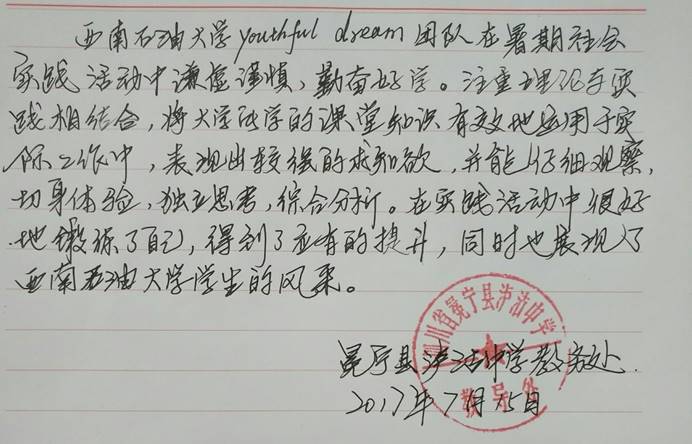 西南石油大学youthful dream团队在暑期社会
实践活动中谦虚谨慎,勤奋好学。注重理论与实
践相结合,将大学所学的课堂知识有效地运用于实
际工作中,表现出较强的求知欲,并能仔细观察,
切身体验,独立思考,综合分析。在实践活动中很好
地锻炼了自己,得到了应有的提升,同时也展现了
西南石油大学学生的风采。
四川省冕宁县泸沽中学
教导处
冕宁县泸沽中学教务处
2017年7月15日